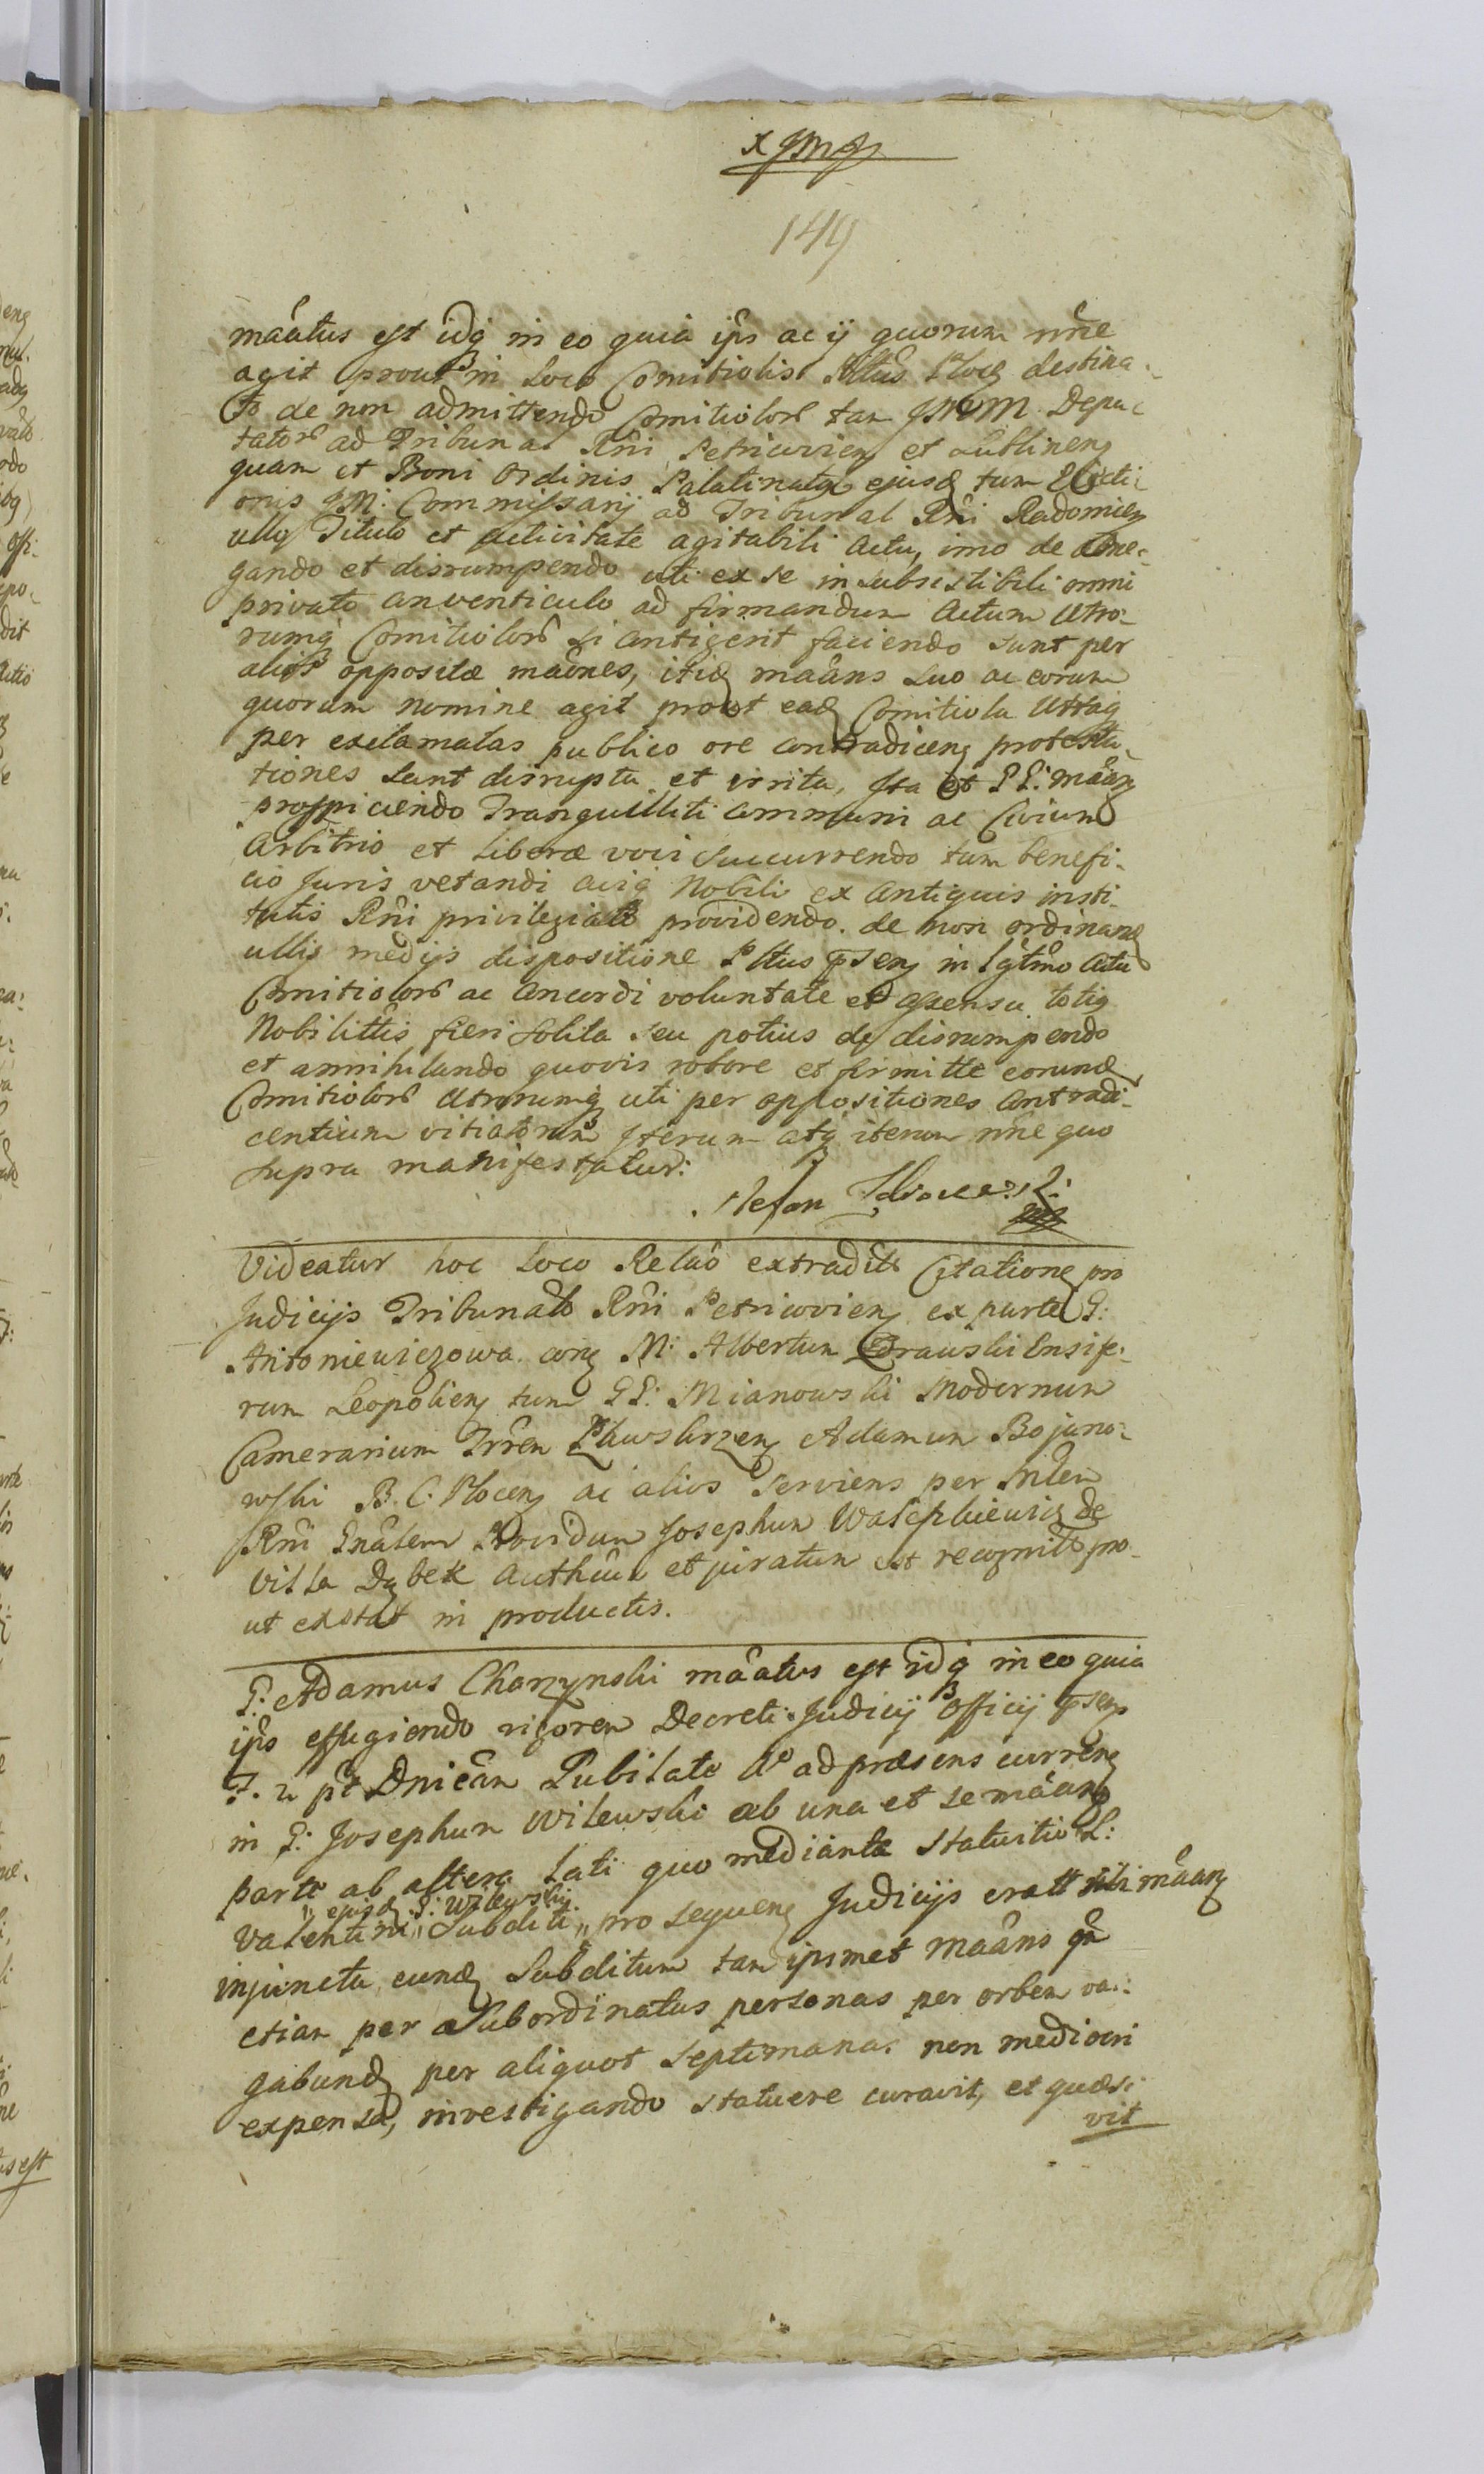 149
māatus est idq in eo quia ips ac ij quorum nne
agit prout in Loco Comitiolis Plttus Ploc destina-
to de non admittendo Comitiolor tam JMM Depu-
tator ad Tribunal Rni Petricovien et Lublinen
quam et Boni Ordinis Palatinatq ejusd tum Electi-
onis JM: Commissarij ad Tribunal Rni Radomien
ullq Titulo et activitate agitabili actu, imo de abne-
gando et disrumpendo uti ex se in subsistibili omni
privato conventiculo ad firmandum Actum Utro-
rumq Comitiolor si contigerit faciendo sunt per
alios oppositæ mānes, itid maāns suo ac eorum
quorum nomine agit prout ead Comitiola Utraq
per exclamatas publico ore contradicen protesta-
tiones sunt disrupta et irrita, Ita et PP: māan
prospiciendo Tranquillitti communi ac Civium
Arbitrio et Liberæ voci succurrendo tum benefi-
cio Juris vetandi cuiq Nobili ex Antiquis insti-
tutis Rni privilegiato providendo. de non ordinand
ullis medijs dispositione Plttus psen in lgtimo Actu
Comitiolor ac Concordi voluntate et assensu totiq
Nobilittis fieri solita seu potius de disrumpendo
et annihilando quovis robore et firmitte eorund
Comitiolor Utrorumq uti per oppositiones Contradi-
centium vitiatorum Iterum atq iterum nne quo
supra manifestatur:
Stefan
Videatur hoc Loco Relāo extradit Citatione pro
Judicijs Tribunalo Rni Petricovien ex parte G:
Antoniewiczowa con M: Albertum Zdrawski Ensife-
rum Leopolien tum GG: Mianowski Modernum
Camerarium Trren Adamum Bojano-
wski B. C. Plocen ac alios Serviens per Mlem
Rni Gnālem Providum Josephum Wasiphiewicz de
Villa Dąbek Authcum et juratum est recognit pro-
ut exstat in productis.
G: Adamus Charzynski māatus est idq in eo quia
ips effugiendo rigorem Decreti Judicij Officij psen
F. 2 pt Dnicān Jubilate Ao ad præsens curren
in G: Josephum Wilewski ab una et se māan
parte ab altera Lati quo mediante statuitio L:
" ejusd G: Wilewski
Valentini " Subditi " pro sequen Judicijs eratt sibi māan
injuncta, eund Subditum tam ipsmet māans qm
etiam per subordinatus personas per orbem va-
gabund per aliquot septimanas non mediocri
expensa, investigando statuere curavit, et quæsi
vit